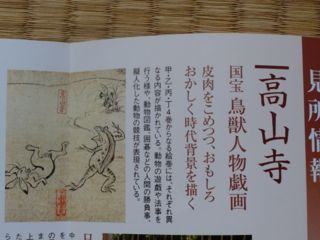 見所情報
高山寺
国宝 鳥獣人物戯画
皮肉をこめつつ、おもしろ
おかしく時代背景を描く
甲・乙・丙・丁4巻からなる絵巻には、それぞれ異
なる内容が描かれている。動物の遊戯や法事を
行う様や、動物図鑑、囲碁などの人間の勝負事、
擬人化した動物の競技が表現されている。